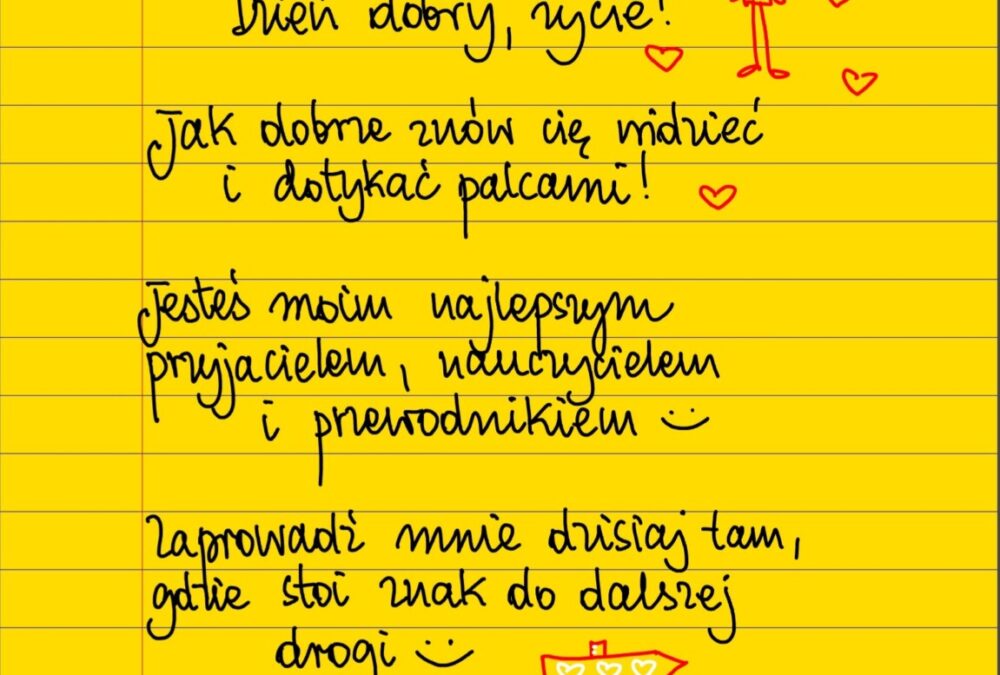 Dzień dobry, życie!
Jak dobrze znów cię widzieć
i dotykać palcami!
Jesteś moim najlepszym
przyjacielem, nauczycielem
i przewodnikiem :)
Zaprowadź mnie dzisiaj tam,
gdzie stoi znak do dalszej
drogi :)